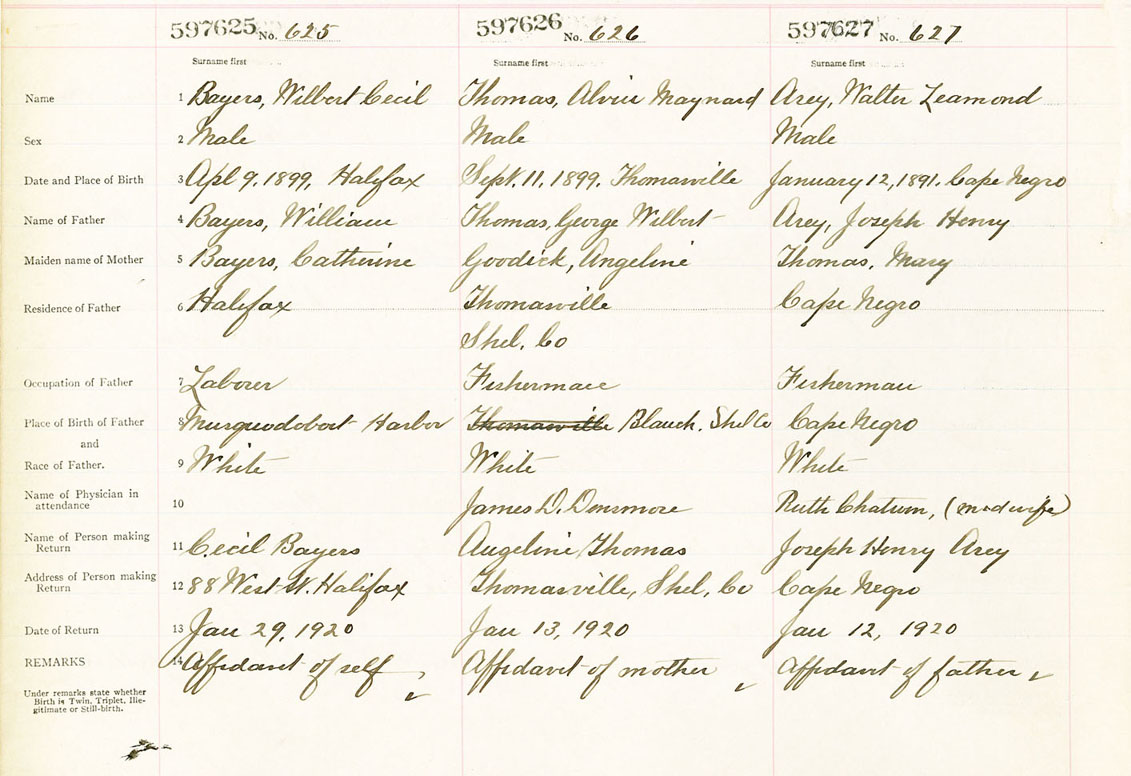 597625 No. 625 597626 No. 626 597627 No. 627
Surname first Surname first Surname first
Name 1 Bayers, Wilbert Cecil Thomas, Alvin Maynard Arey, Walter Leamond
Sex 2 Male Male Male
Date and Place of Birth 3 Apl 9, 1899, Halifax Sept. 11, 1899. Thomasville January 12, 1891. Cape Negro
Name of Father 4 Bayers, William Thomas, George Wilbert Arey, Joseph Henry
Maiden name of Mother 5 Bayers, Catherine Goodick, Angeline Thomas, Mary
Residence of Father 6 Halifax Thomasville Cape Negro
Shel. Co
Occupation of Father 7 Laborer Fisherman Fisherman
Place of Birth of Father 8 Musquodoboit Harbor Thomasville Blanch. Shel Co Cape Negro
and
Race of Father. 9 White White White
Name of Physician in
attendance 10 James D. Densmore Ruth Chatum, (midwife)
Name of Person making
Return 11 Cecil Bayers Angeline Thomas Joseph Henry Arey
Address of Person making
Return 12 88 West St. Halifax Thomasville, Shel, Co Cape Negro
Date of Return 13 Jan 29, 1920 Jan 13, 1920 Jan 12, 1920
REMARKS 14 Affidavit of self Affidavit of mother Affidavit of father
Under remarks state whether
Birth is Twin, Triplet, Ille-
gitimate or Still-birth.